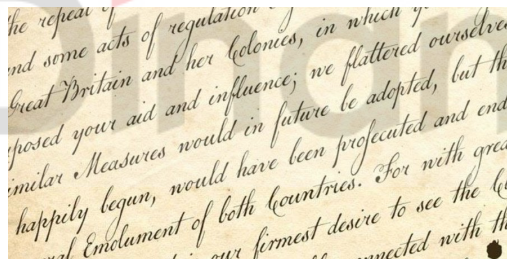 the repeal of
and some acts of regulation
Great Britain and her Colonies, in which
posed your aid and influence; we flattered ourselves
imilar Measures would in future be adopted, but th
happily begun, would have been prosecuted and end
ral Emolument of both Countries. For with grea
our firmest desire to see the
nnected with th
Dinam